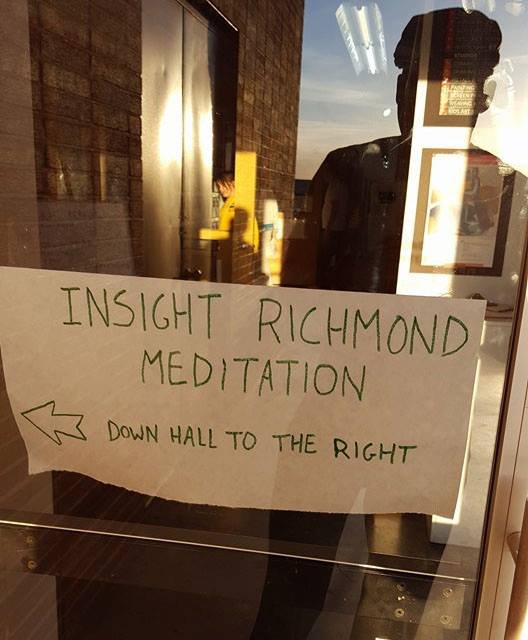 PAINTING
INSIGHT RICHMOND
MEDITATION
DOWN HALL TO THE RIGHT